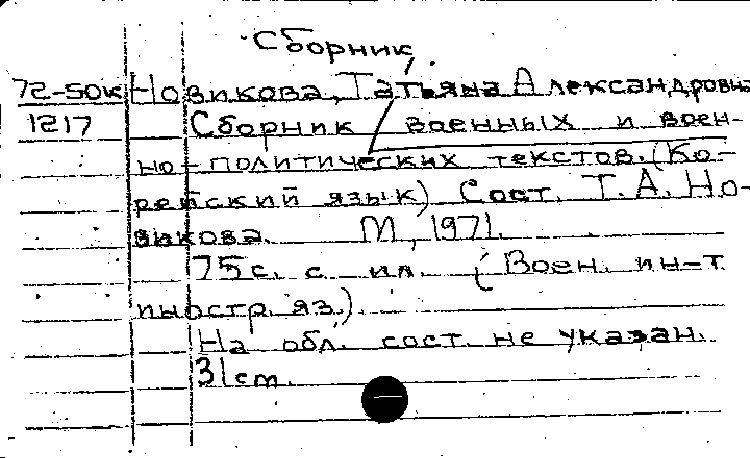 Сборник
72-50к Новикова, Татьяна Александровна
1217 Сборник военных и воен-
но-политических текстов. (Ко-
рейский язык) Сост. Т. А. Но-
викова. М., 1971.
75 с. с ил. (Воен. ин-т
иностр. яз.).
На обл. сост. не указан.
31 см.